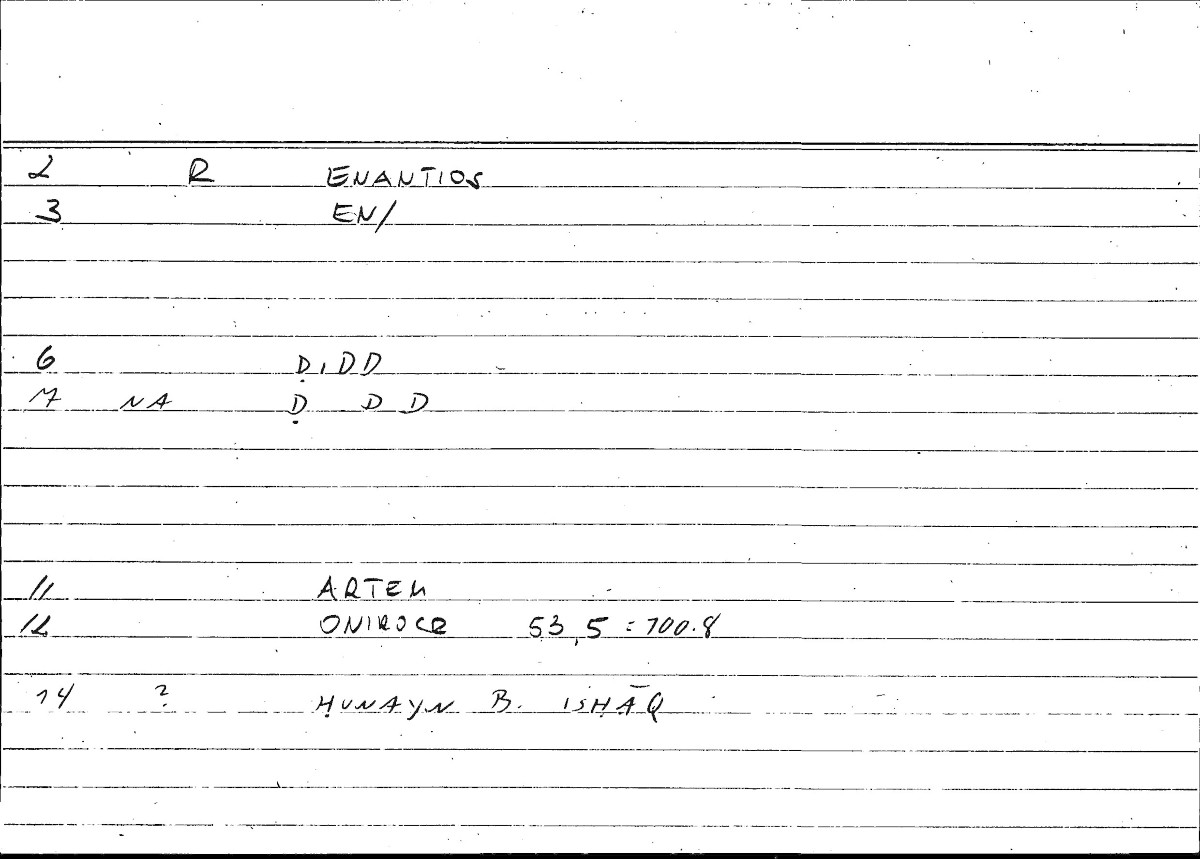 2 R ENANTIOS
3 EN/
6 ḌIDD
7 NA Ḍ D D
11 ARTEM
12 ONIROCR 53,5 = 100.8
14 ? ḤUNAYN B. ISḤĀQ